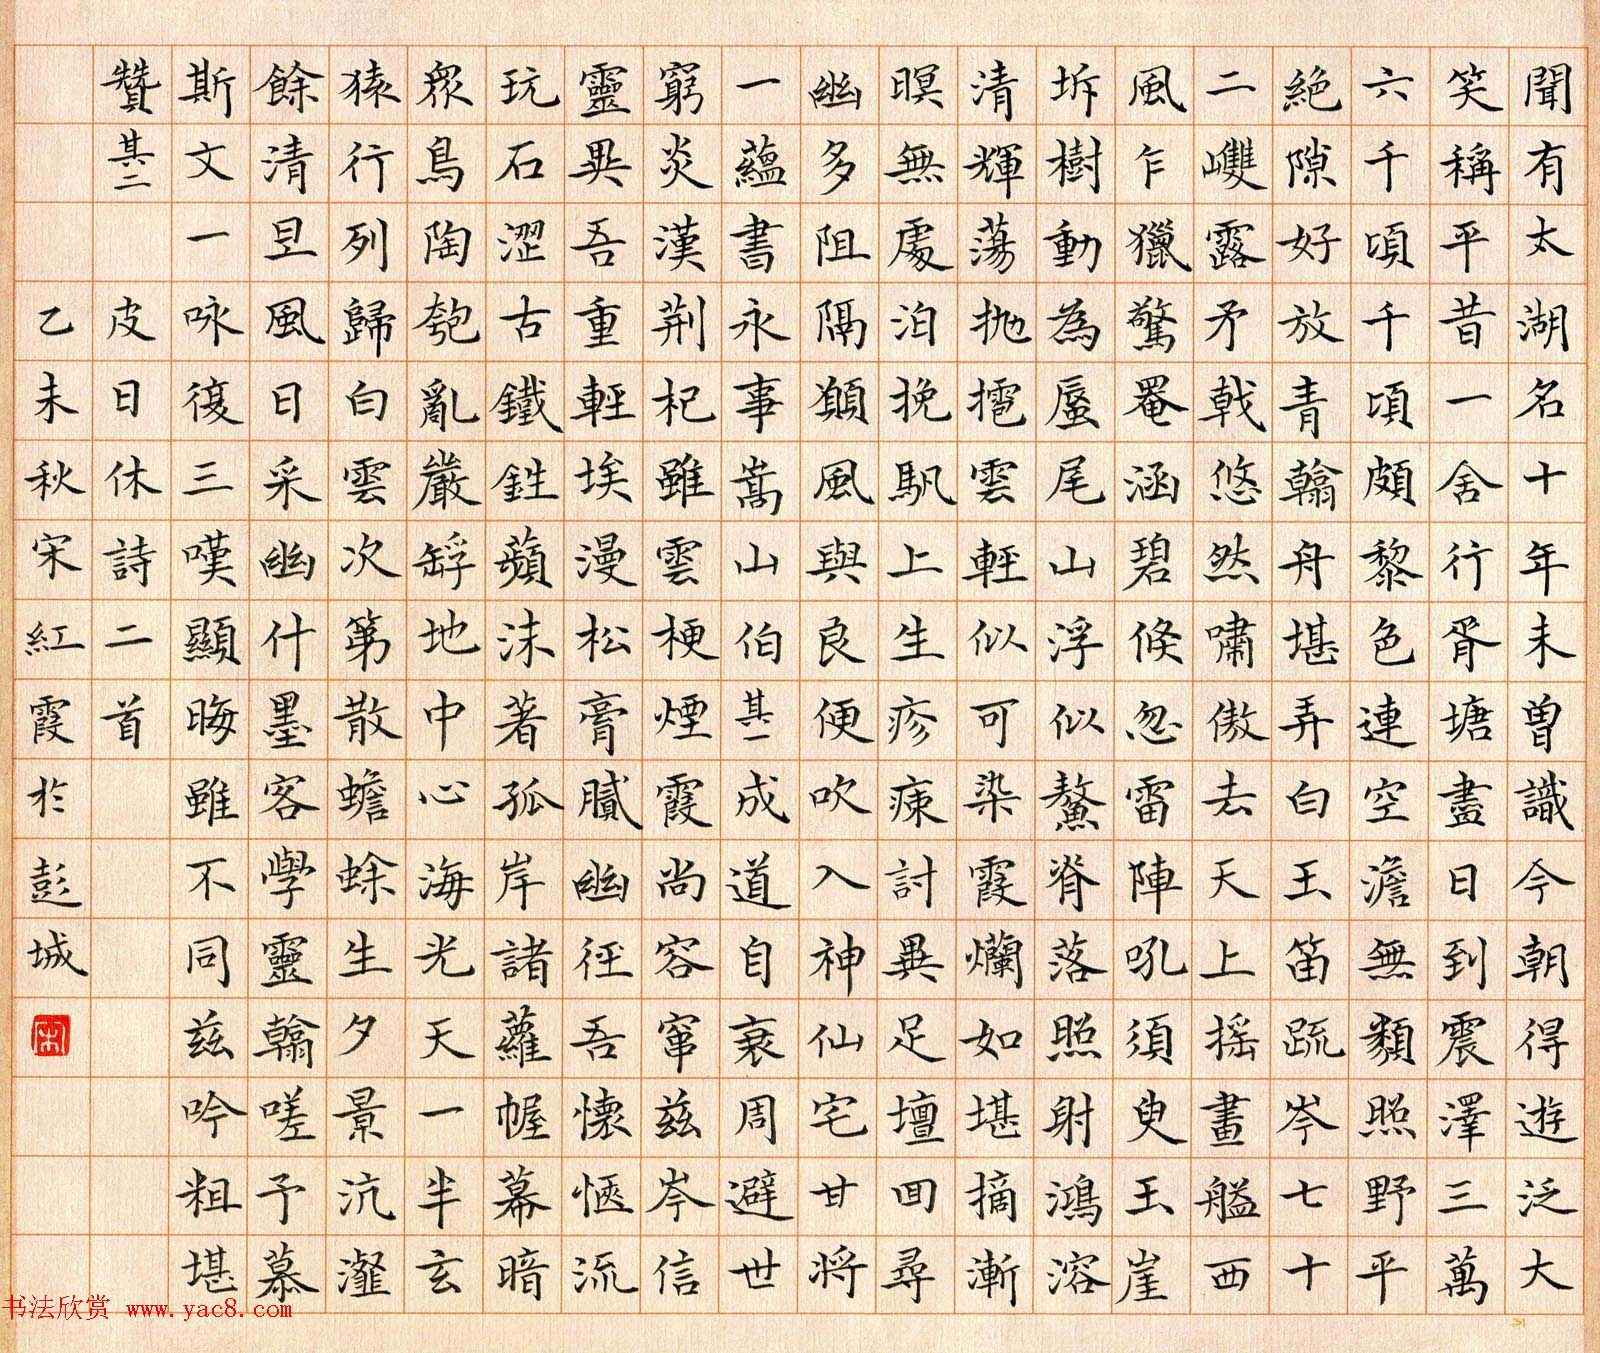 聞有太湖名十年未曾識今朝得遊泛大
笑稱平昔一舍行胥塘盡日到震澤三萬
六千頃千頃頗黎色連空澹無纇照野平
絕隙好放青翰舟堪弄白玉笛疏岑七十
二雙露矛戟悠然嘯傲去天上搖畫艗西
風乍獵驚罨涵碧倏忽雷陣吼須臾玉崖
坼樹動為蜃尾山浮似鰲脊落照射鴻溶
清輝蕩拋雲輕似可染霞爛如堪摘漸
暝無處泊挽帆上生疹痑討異足壇回尋
幽多阻隔願風與良便吹入神仙宅甘將
一蘊書永事嵩山伯其一成道自衰周避世
窮炎漢荆杞雖雲梗煙霞尚容竄茲岑信
靈異吾重輕埃漫松膏膩幽徑吾懷愜流
玩石澀古鐵鉎蘋沫著孤岸諸蘿幄幕暗
眾鳥陶匏亂巖地中心海光天一半玄
猿行列歸白雲次第散蟾蜍生夕景沆瀣
餘清旦風日采幽什墨客學靈翰嗟予慕
斯文一咏復三嘆顯晦雖不同茲吟粗堪
贊其二 皮日休詩二首
乙未秋宋紅霞於彭城
宋
书法欣赏 www.yac8.com